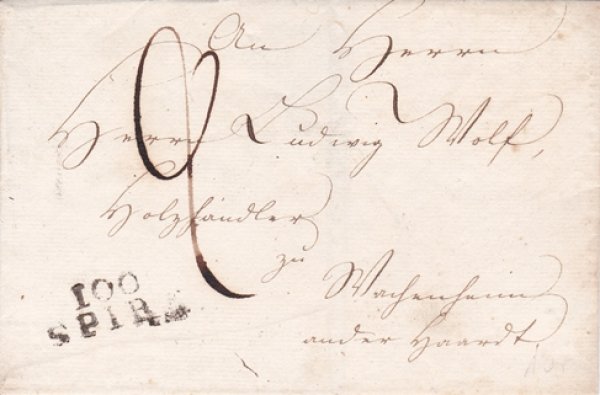 An Herrn
Herrn Ludwig Wolf,
Holzhändler
zu
Wachenheim
an der Haardt.
100
SPIRE